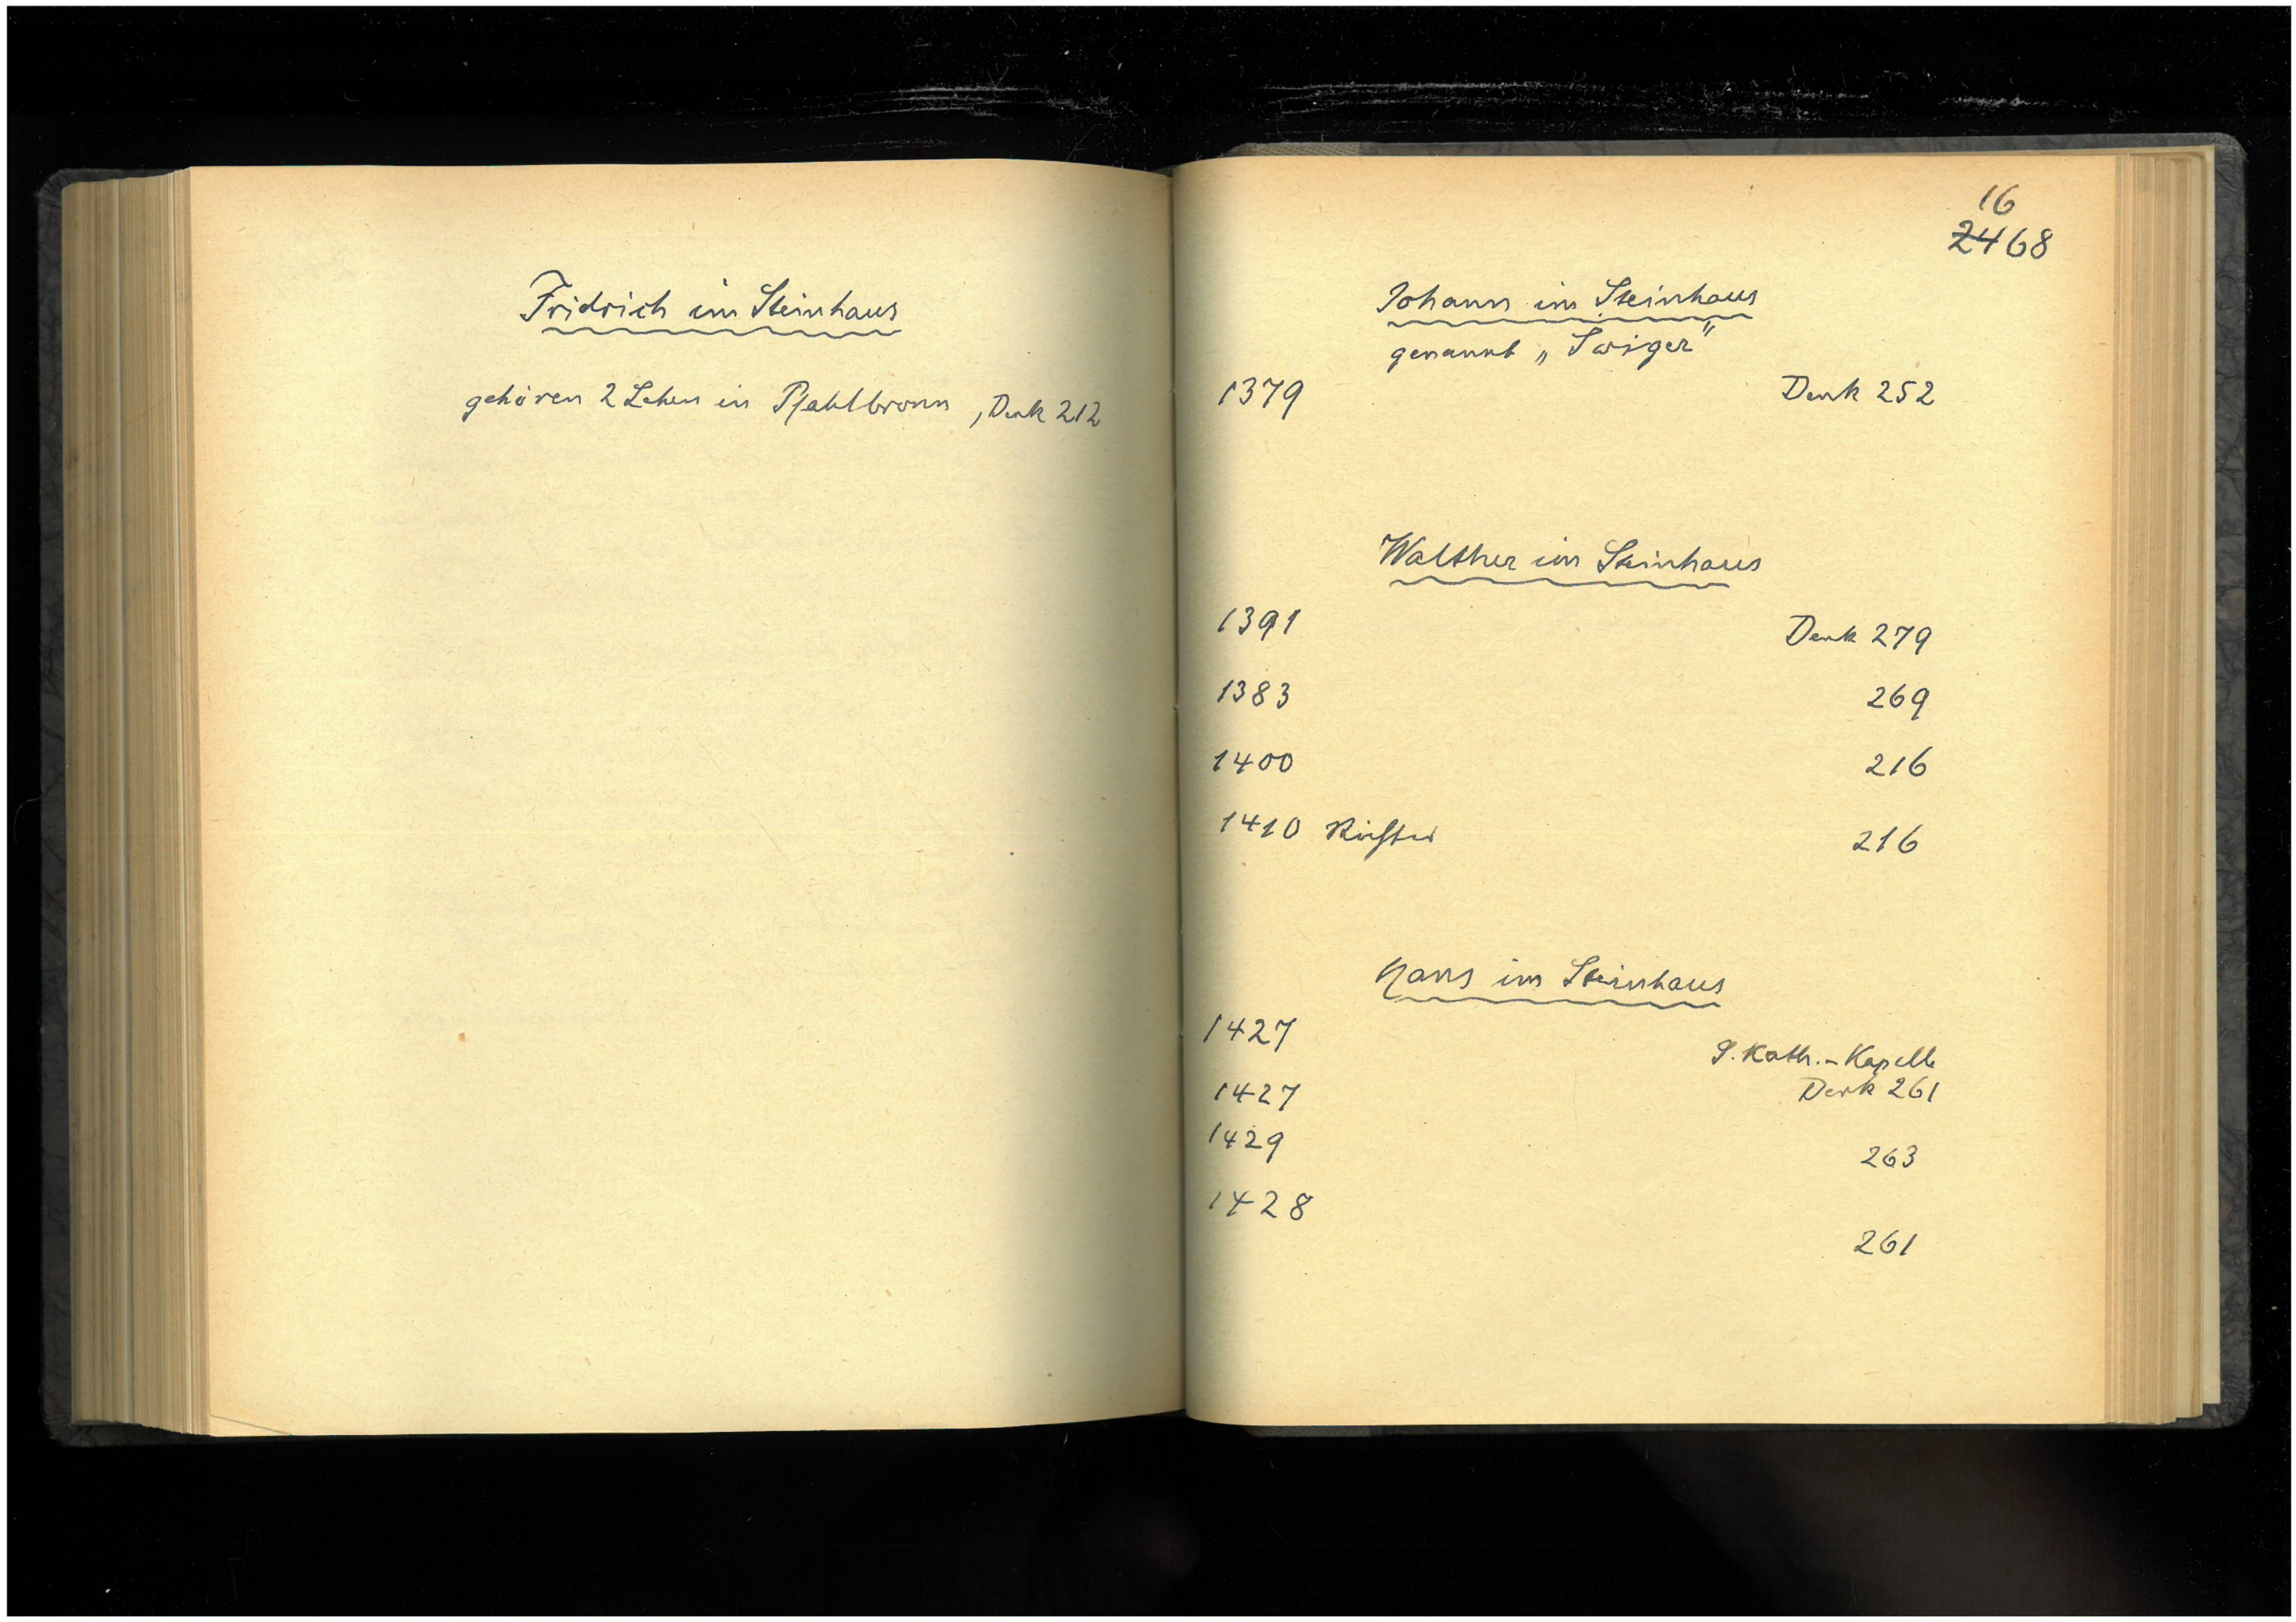 Fridrich im Steinhaus
gehören 2 Lehen in Pfahlbronn, Denk 212
16
2468
Johann im Steinhaus
genannt „Swiger"
1379 Denk 252
Walther im Steinhaus
1391 Denk 279
1383 269
1400 216
1410 Richter 216
Hans im Steinhaus
1427 S. Kath.-Kapelle
1427 Denk 261
1429 263
1428 261